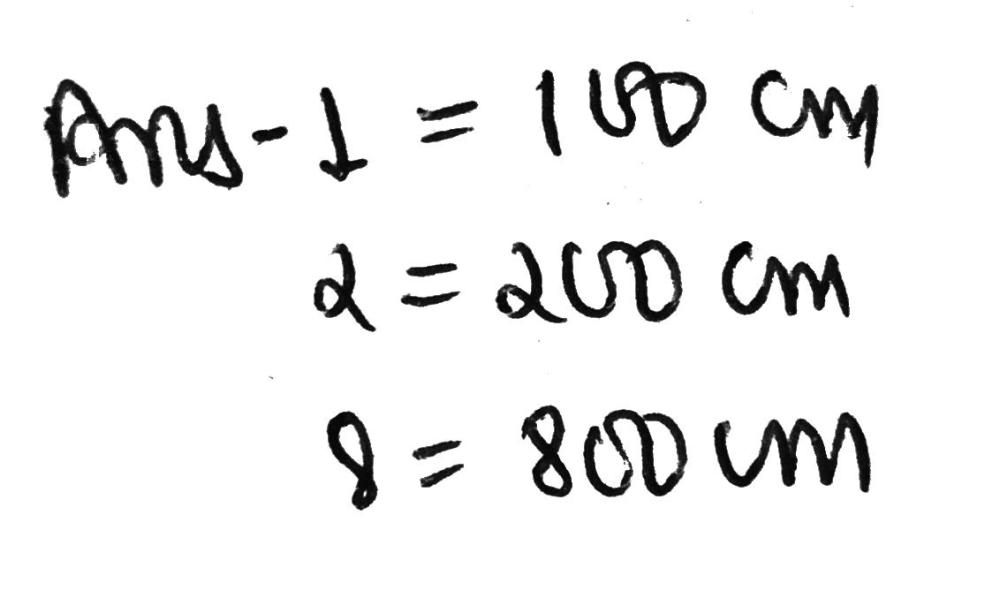 Ans-1 = 100 cm
2 = 200 cm
8 = 800 cm